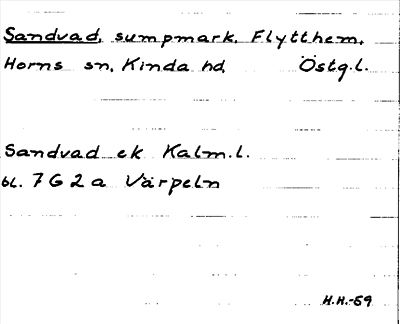 Sandvad, sumpmark. Flytthem.
Horns sn. Kinda hd. Östg.l.
Sandvad ek Kalm.l.
bl. 7G2a Värpeln
H.H.-59